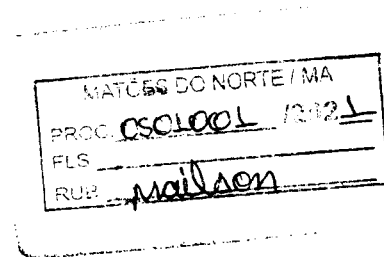 MATÕES DO NORTE / MA
PROC. 0501001 /2021
FLS
RUB Mailson